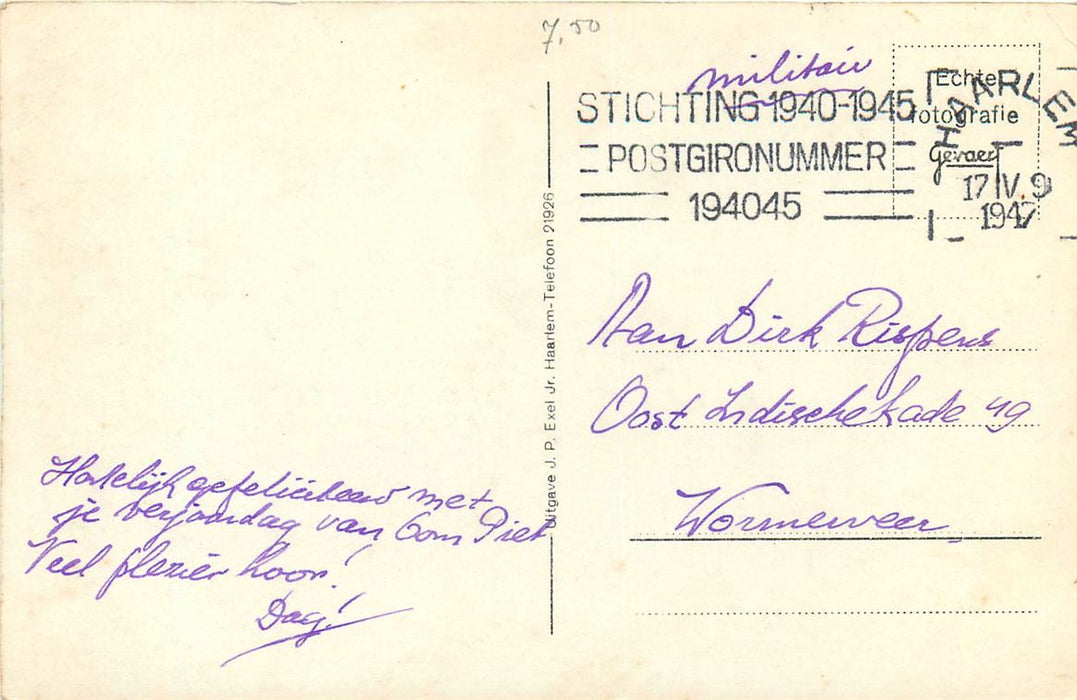 7,50
militair
STICHTING 1940-1945
POSTGIRONUMMER
194045
HAARLEM
17 IV. 9
1947
Echte
fotografie
Gevaert
Uitgave J. P. Exel Jr. Haarlem-Telefoon 21926
Aan Dirk Rispens
Oost Indischekade 49
Wormerveer
Hartelijk gefeliciteerd met
je verjaardag van Oom Piet
Veel plezier hoor!
Dag!